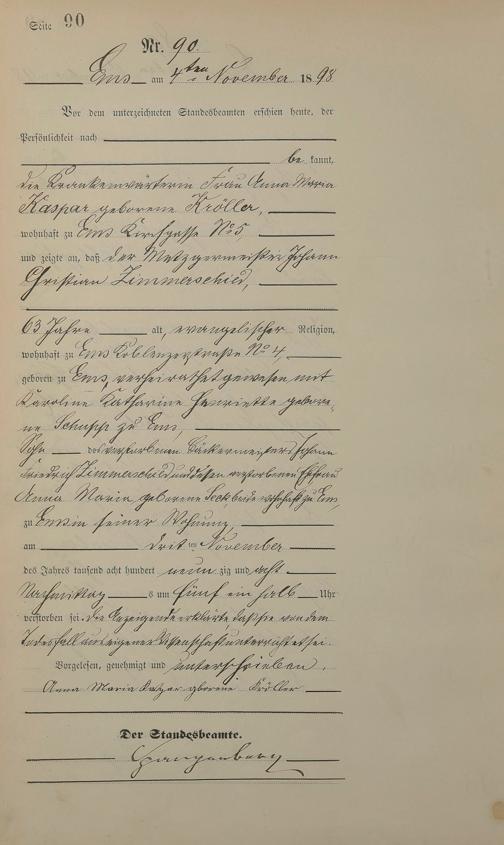 Seite 90
Nr. 90.
Ems am 4ten November 1898
Vor dem unterzeichneten Standesbeamten erschien heute, der
Persönlichkeit nach
be kannt,
die Krankenwärterin Frau Anna Maria
Kaspar geborene Kröller,
wohnhaft zu Ems Kirchgasse No 5
und zeigte an, daß der Metzgermeister Johann
Christian Zimmerschied,
63 Jahre alt, evangelischer Religion,
wohnhaft zu Ems Koblenzerstraße No 4,
geboren zu Ems, verheirathet gewesen mit
Karoline Katharine Henriette gebore-
ne Schupp zu Ems,
Sohn des verstorbenen Bäckermeisters Johann
Friedrich Zimmerschied und dessen verstorbenen Ehefrau
Anna Maria, geborene beide wohnhaft zu Ems,
zu Ems in seiner Wohnung,
am dritten November
des Jahres tausend acht hundert neun zig und acht
Nachmittags um fünf ein halb Uhr
verstorben sei. Die Anzeigende erklärte, daß sie von dem
Todesfall aus eigener Wissenschaft unterrichtet sei.
Vorgelesen, genehmigt und unterschrieben.
Anna Maria Kaspar geborene Kröller
Der Standesbeamte.
Spangenberg